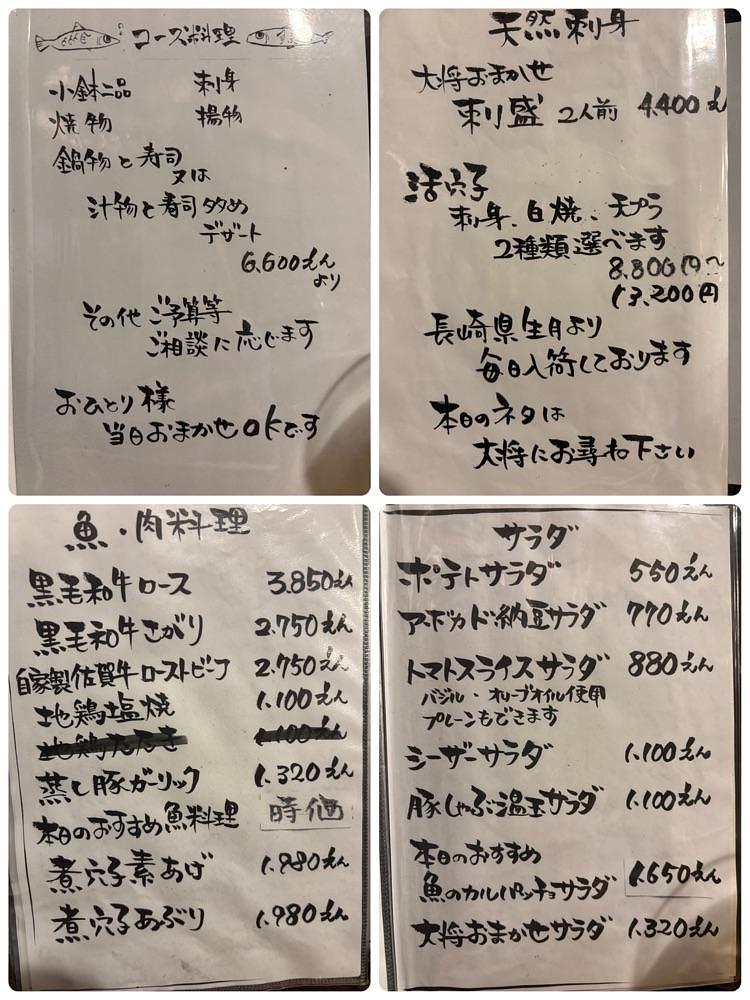 コース料理
小鉢二品 刺身
焼物 揚物
鍋物と寿司
又は
汁物と寿司多め
デザート
6,600えん
より
その他ご予算等
ご相談に応じます
おひとり様
当日おまかせOKです
天然刺身
大将おまかせ
刺盛 2人前 4,400えん
活穴子
刺身、白焼、天プラ
2種類選べます
8,800円〜
13,200円
長崎県生月より
毎日入荷しております
本日のネタは
大将にお尋ね下さい
魚・肉料理
黒毛和牛ロース 3.850えん
黒毛和牛さがり 2.750えん
自家製佐賀牛ローストビーフ 2.750えん
地鶏塩焼 1.100えん
地鶏たたき 1.100えん
蒸し豚ガーリック 1.320えん
本日のおすすめ魚料理 時価
煮穴子素あげ 1.980えん
煮穴子あぶり 1.980えん
サラダ
ポテトサラダ 550えん
アボカド納豆サラダ 770えん
トマトスライスサラダ 880えん
バジル・オリーブオイル使用
プレーンもできます
シーザーサラダ 1.100えん
豚しゃぶ温玉サラダ 1.100えん
本日のおすすめ
魚のカルパッチョサラダ 1.650えん
大将おまかせサラダ 1.320えん